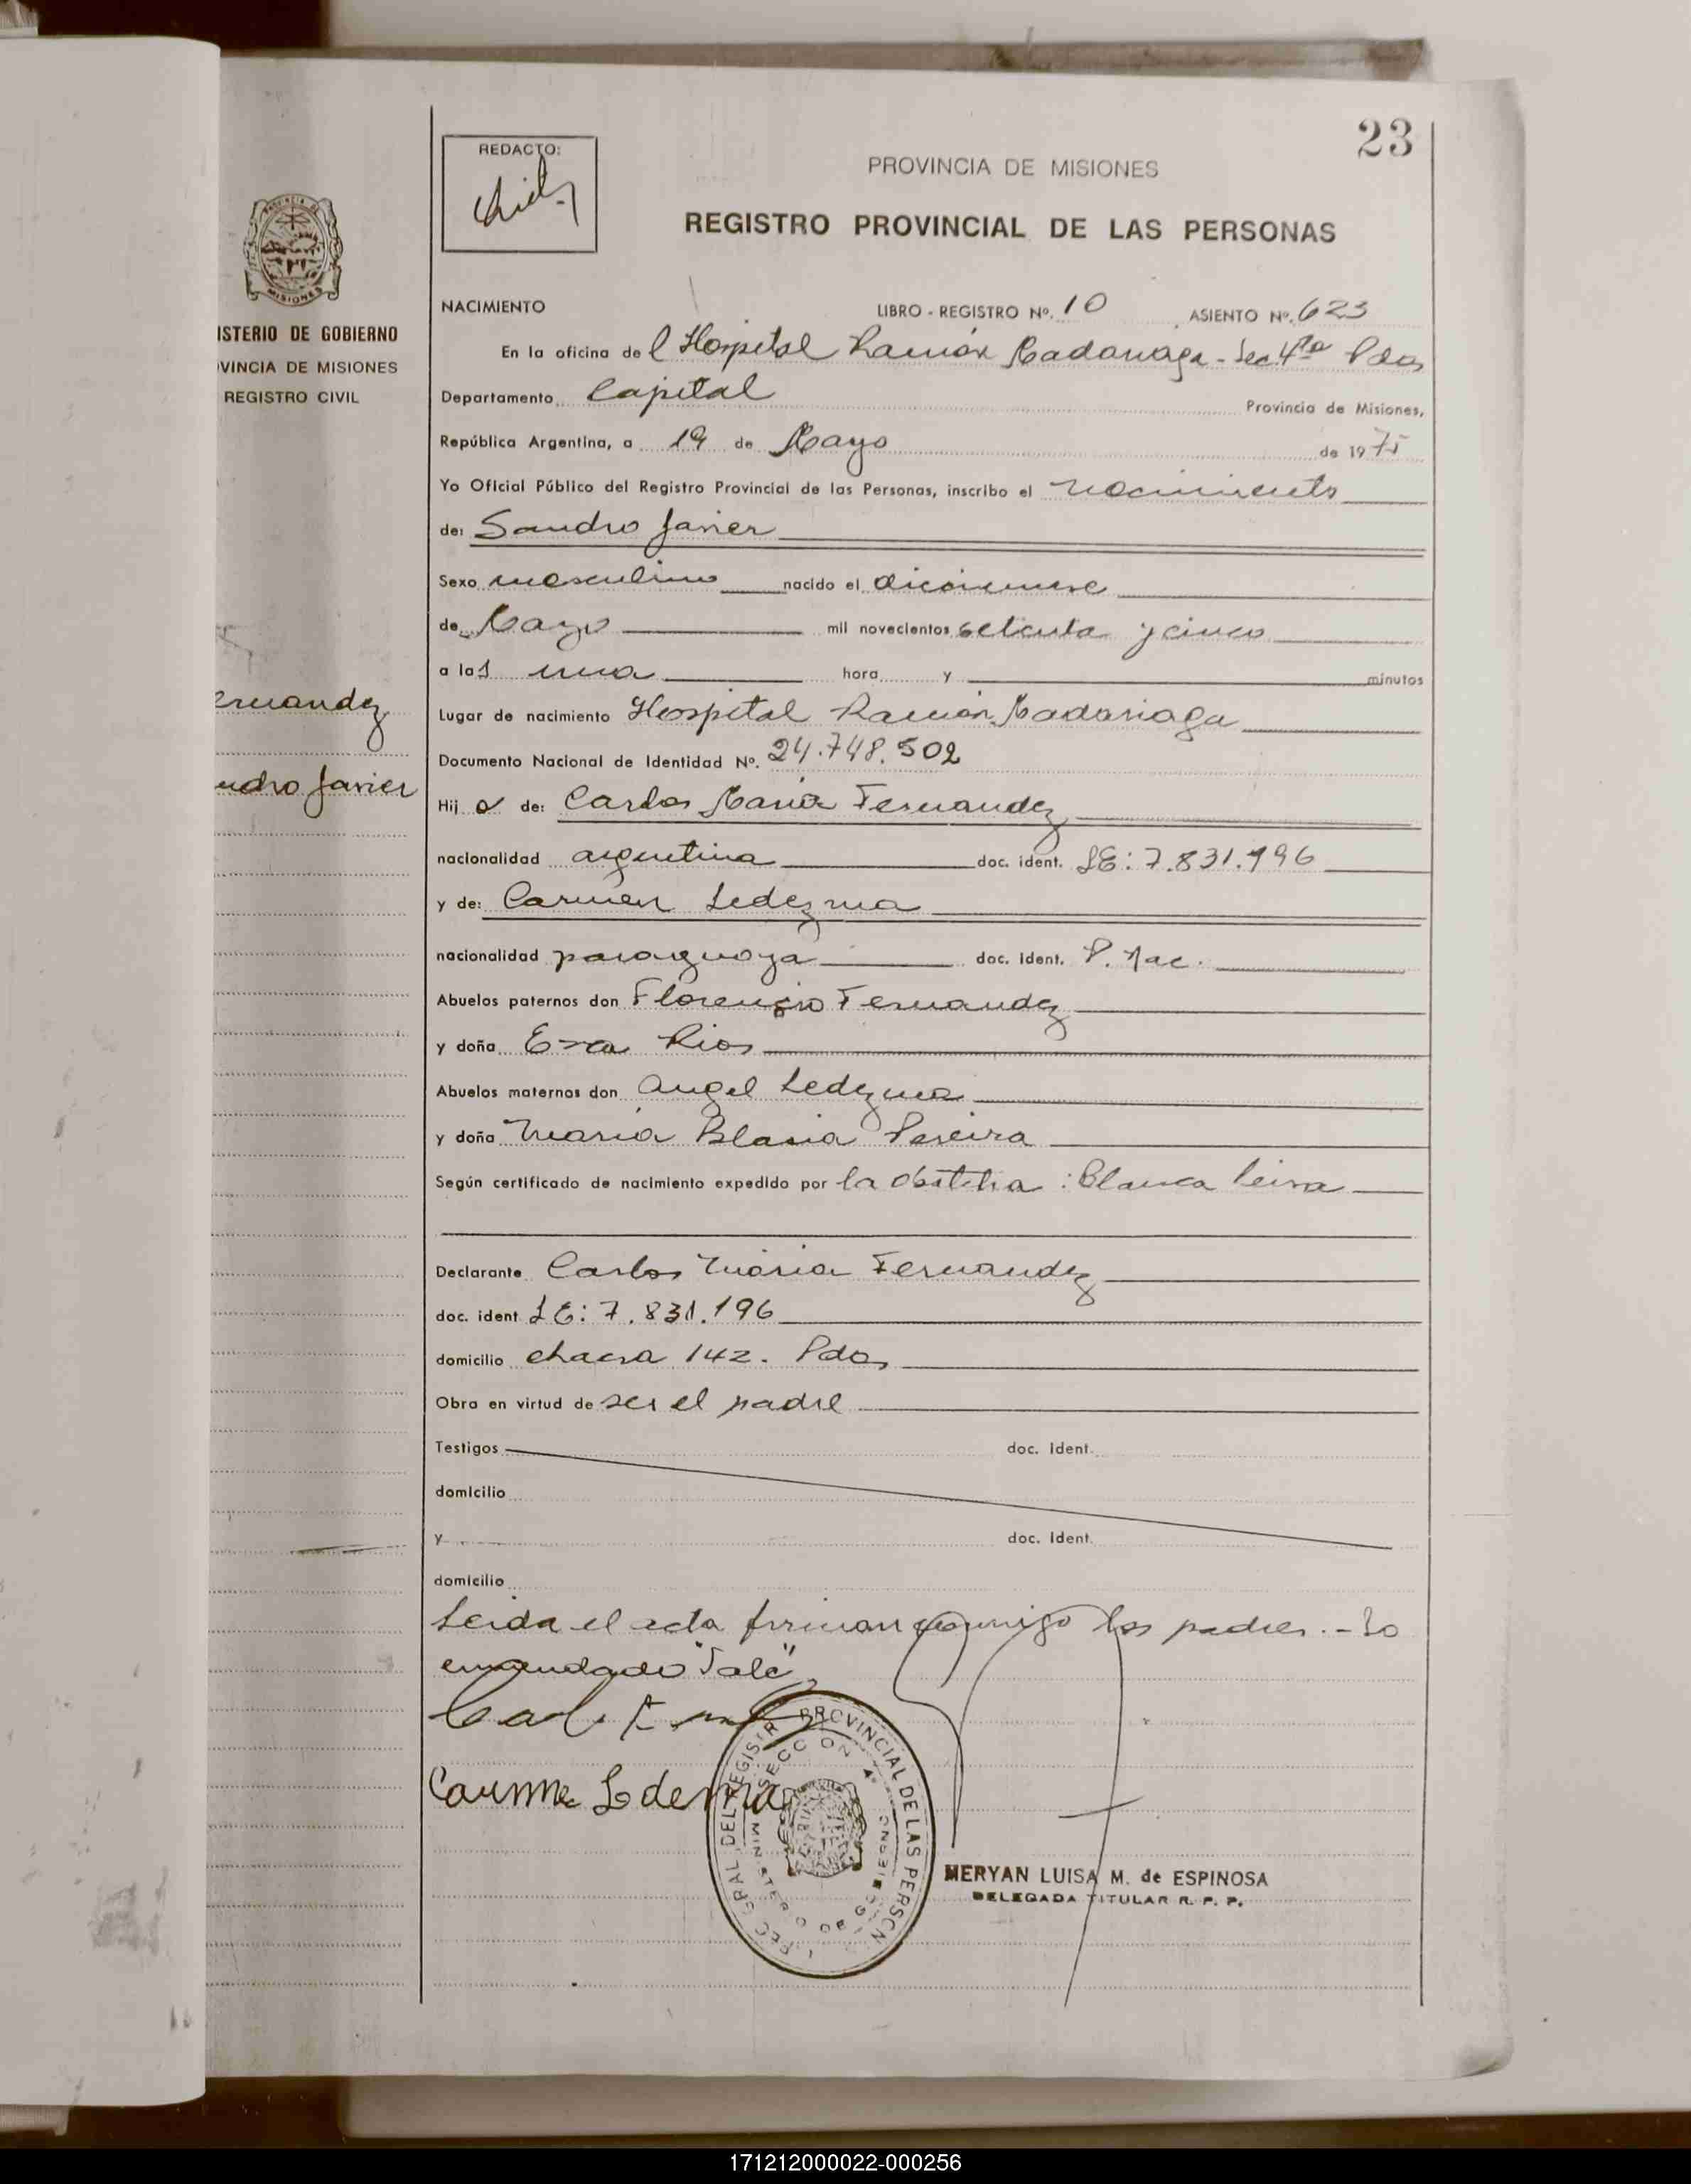 23
REDACTO:
PROVINCIA DE MISIONES
REGISTRO PROVINCIAL DE LAS PERSONAS
MISIONES
ISTERIO DE GOBIERNO
VINCIA DE MISIONES
REGISTRO CIVIL
ernandez
ndro Javier
NACIMIENTO LIBRO - REGISTRO Nº. 10 ASIENTO Nº. 623
En la oficina de l Hospital Ramón Madariaga - Sec. 4ta Pdas
Departamento Capital Provincia de Misiones,
República Argentina, a 19 de Mayo de 1975
Yo Oficial Público del Registro Provincial de las Personas, inscribo el nacimiento
de: Sandro Javier
Sexo masculino nacido el
de Mayo mil novecientos setenta y cinco
a la1 una hora y minutos
Lugar de nacimiento Hospital Ramón Madariaga
Documento Nacional de Identidad Nº. 24.748.502
Hij o de: Carlos María Fernandez
nacionalidad argentina doc. ident. LE: 7.831.196
y de: Carmen Ledezma
nacionalidad paraguaya doc. ident. P. Nac.
Abuelos paternos don Florencio Fernandez
y doña Eva Rios
Abuelos maternos don Angel Ledezma
y doña María Blasia Pereira
Según certificado de nacimiento expedido por la obstetra : Blanca Leiva
Declarante Carlos María Fernandez
doc. ident LE: 7.831.196
domicilio chacra 142. Pdas
Obra en virtud de ser el padre
Testigos doc. ident.
domicilio
y doc. ident.
domicilio
Leida el acta firman conmigo los padres. - Lo
enmendado "Vale"
MERYAN LUISA M. de ESPINOSA
DELEGADA TITULAR R. P. P.
171212000022-000256